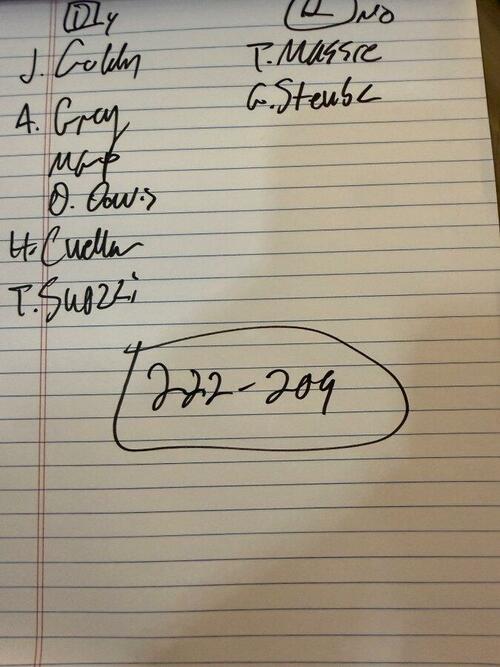 D y
J. Golden
A. Gray
MGP
D. Davis
H. Cuellar
T. Suozzi
R NO
T. Massie
G. Steube
222-209